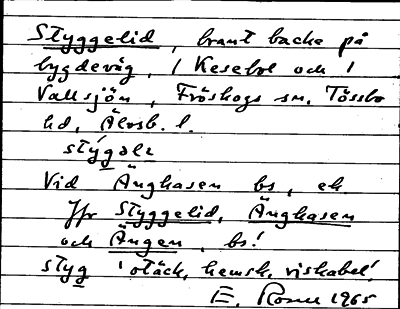 Styggelid, brant backe på
bygdeväg, / Kesebol och /
Vallsjön, Fröskogs sn, Tössbo
hd, Älvsb. l.
Vid Änghasen bs, ek.
Jfr Styggelid, Änghasen
och Ängen, bs!
styg 'otäck, hemsk, riskabel'
E. Rosell 1965